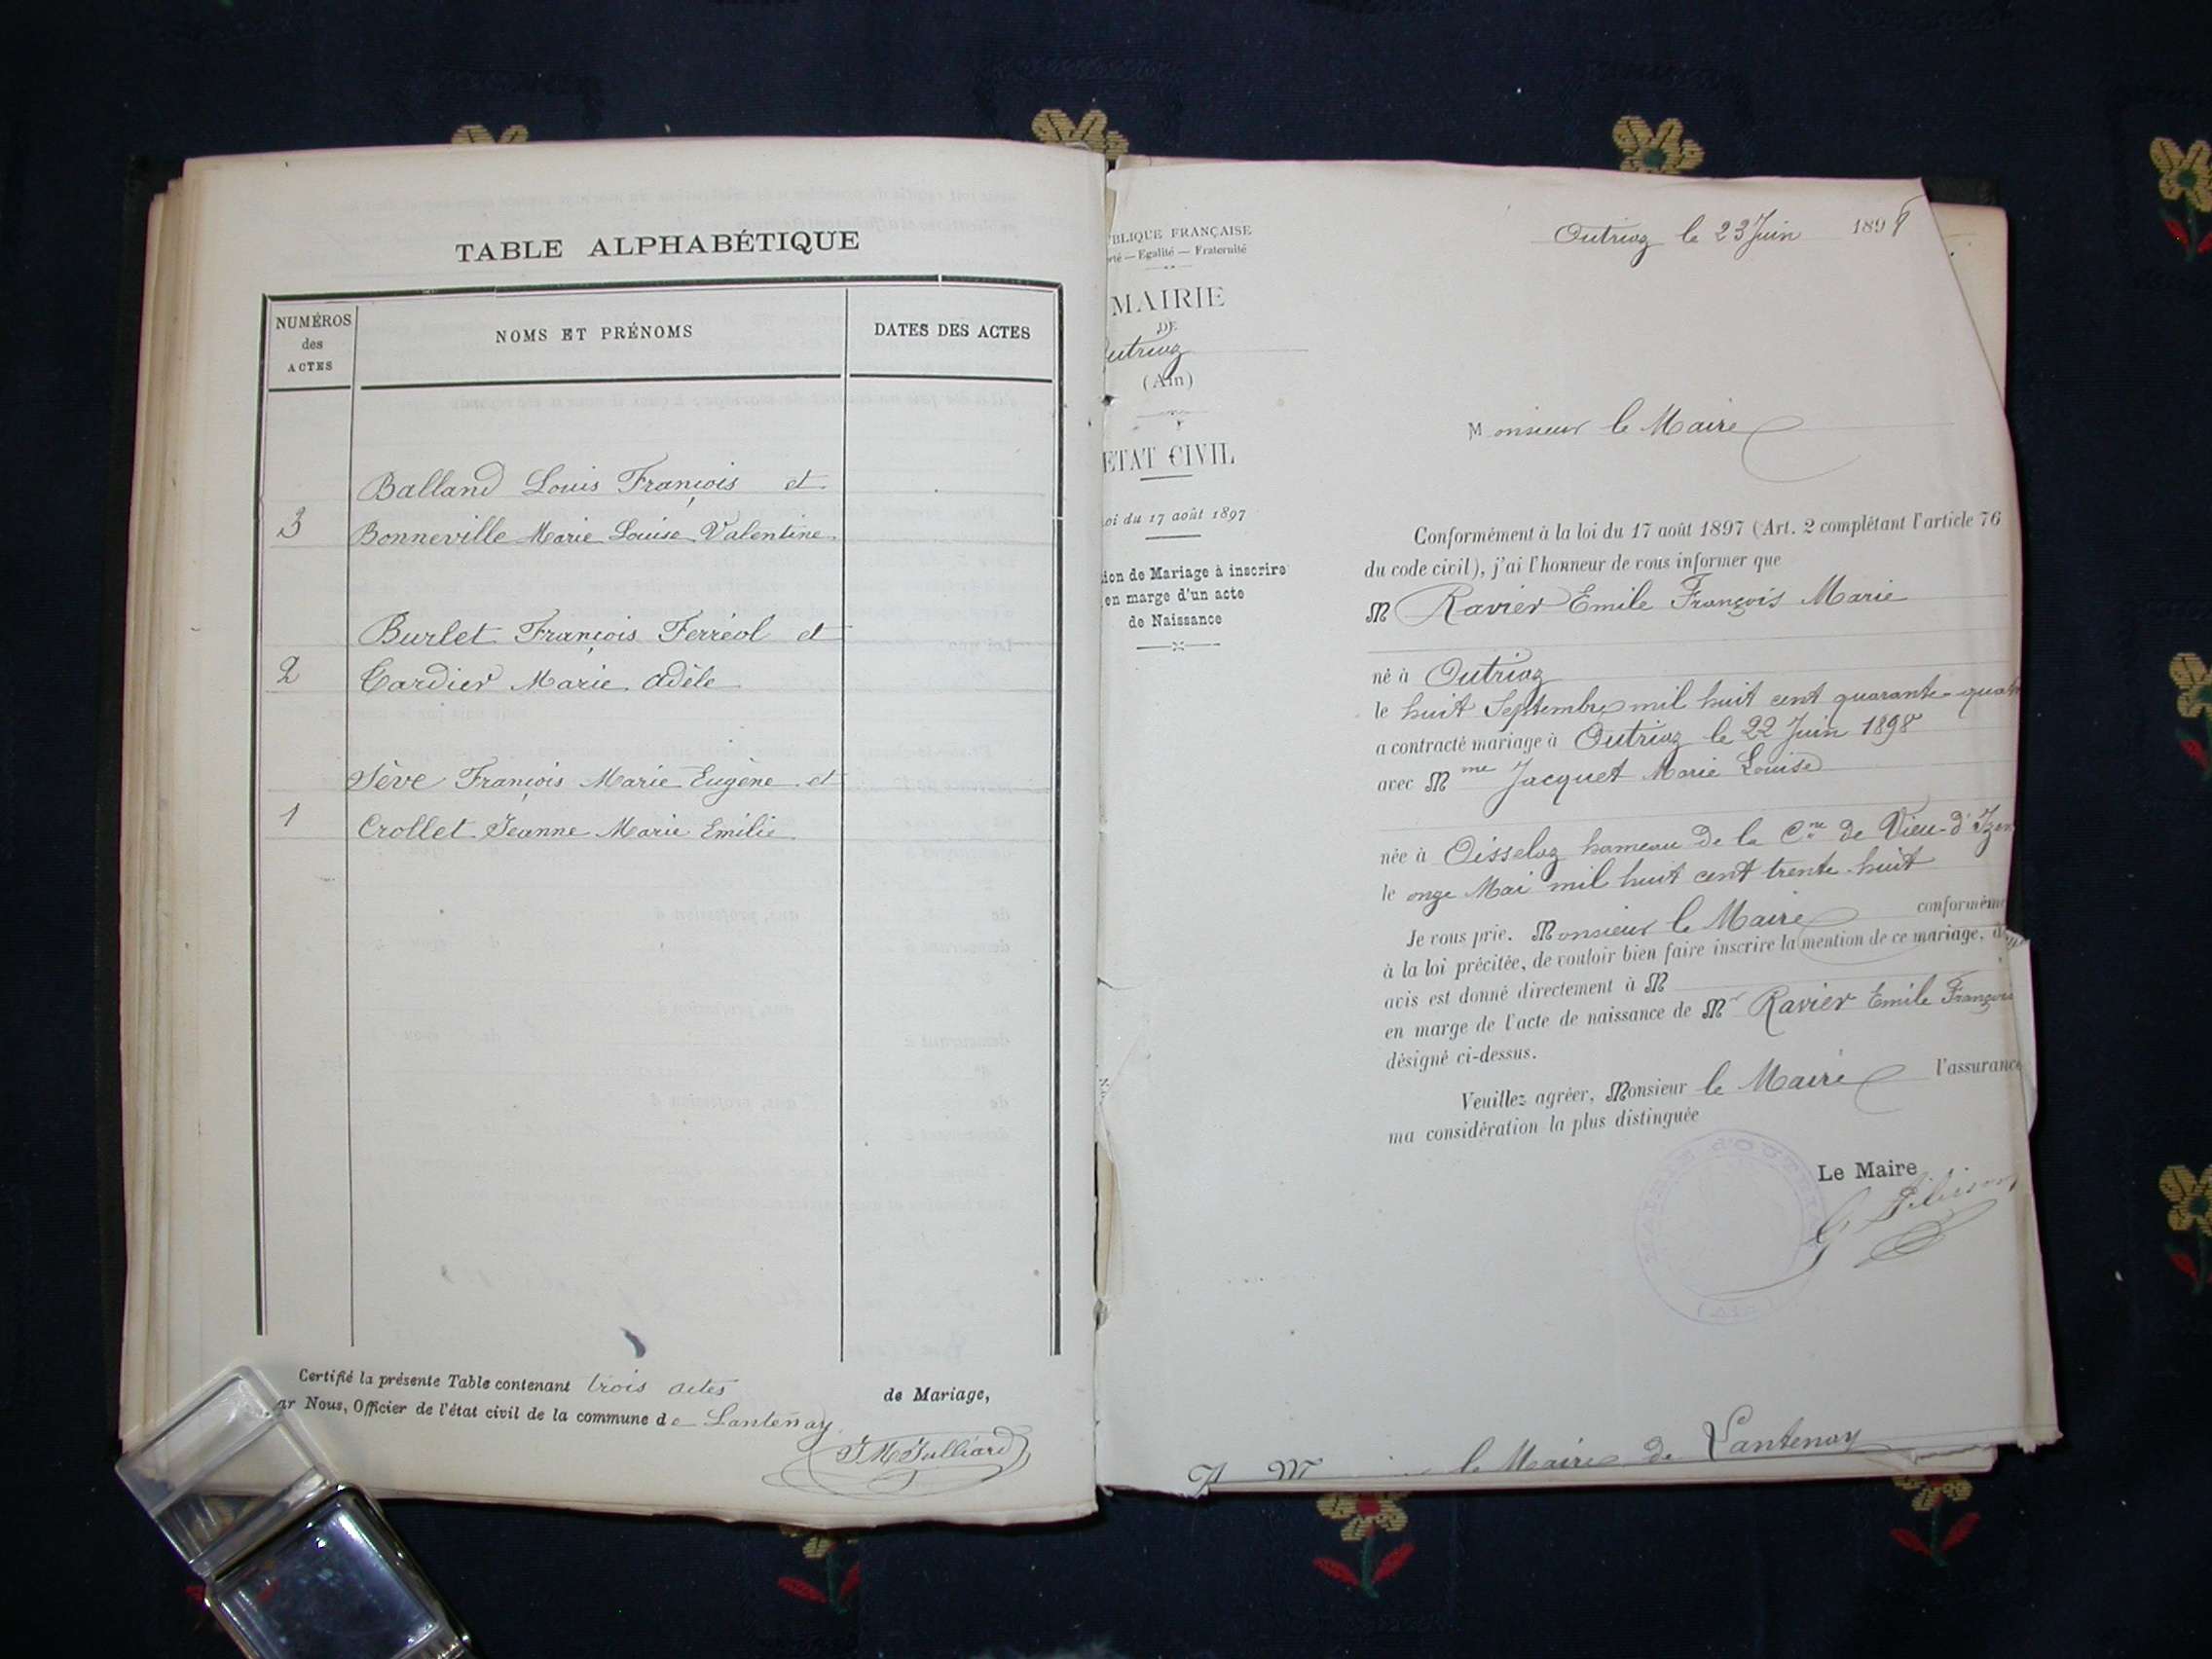 TABLE ALPHABÉTIQUE
NUMÉROS
des
ACTES
NOMS ET PRÉNOMS
DATES DES ACTES
Balland Louis François et
3 Bonneville Marie Louise Valentine
Burlet François Ferréol et
2 Tardier Marie Adèle
Sève François Marie Eugène et
1 Crollet Jeanne Marie Emilie
Certifié la présente Table contenant trois actes de Mariage,
ar Nous, Officier de l'état civil de la commune de Lantenay
JM Julliard
BLIQUE FRANÇAISE
rté — Egalité — Fraternité
MAIRIE
DE
utriaz
(Ain)
ETAT CIVIL
oi du 17 août 1897
ion de Mariage à inscrire
en marge d'un acte
de Naissance
Outriaz le 23 Juin 1898
Monsieur le Maire
Conformément à la loi du 17 août 1897 (Art. 2 complétant l'article 76
du code civil), j'ai l'honneur de vous informer que
M Ravier Emile François Marie
né à Outriaz
le huit Septembre mil huit cent quarante-quat
a contracté mariage à Outriaz le 22 Juin 1898
avec Mme Jacquet Marie Louise
née à Oisselaz hameau de la Cne de Vieu-d'Izen
le onze Mai mil huit cent trente-huit
Je vous prie, Monsieur le Maire conforméme
à la loi précitée, de vouloir bien faire inscrire la mention de ce mariage,
avis est donné directement à M
en marge de l'acte de naissance de Mr Ravier Emile François
désigné ci-dessus.
Veuillez agréer, Monsieur le Maire l'assurance
ma considération la plus distinguée
Le Maire
MAIRIE D'OUTRI
(AIN)
A M le Maire de Lantenay